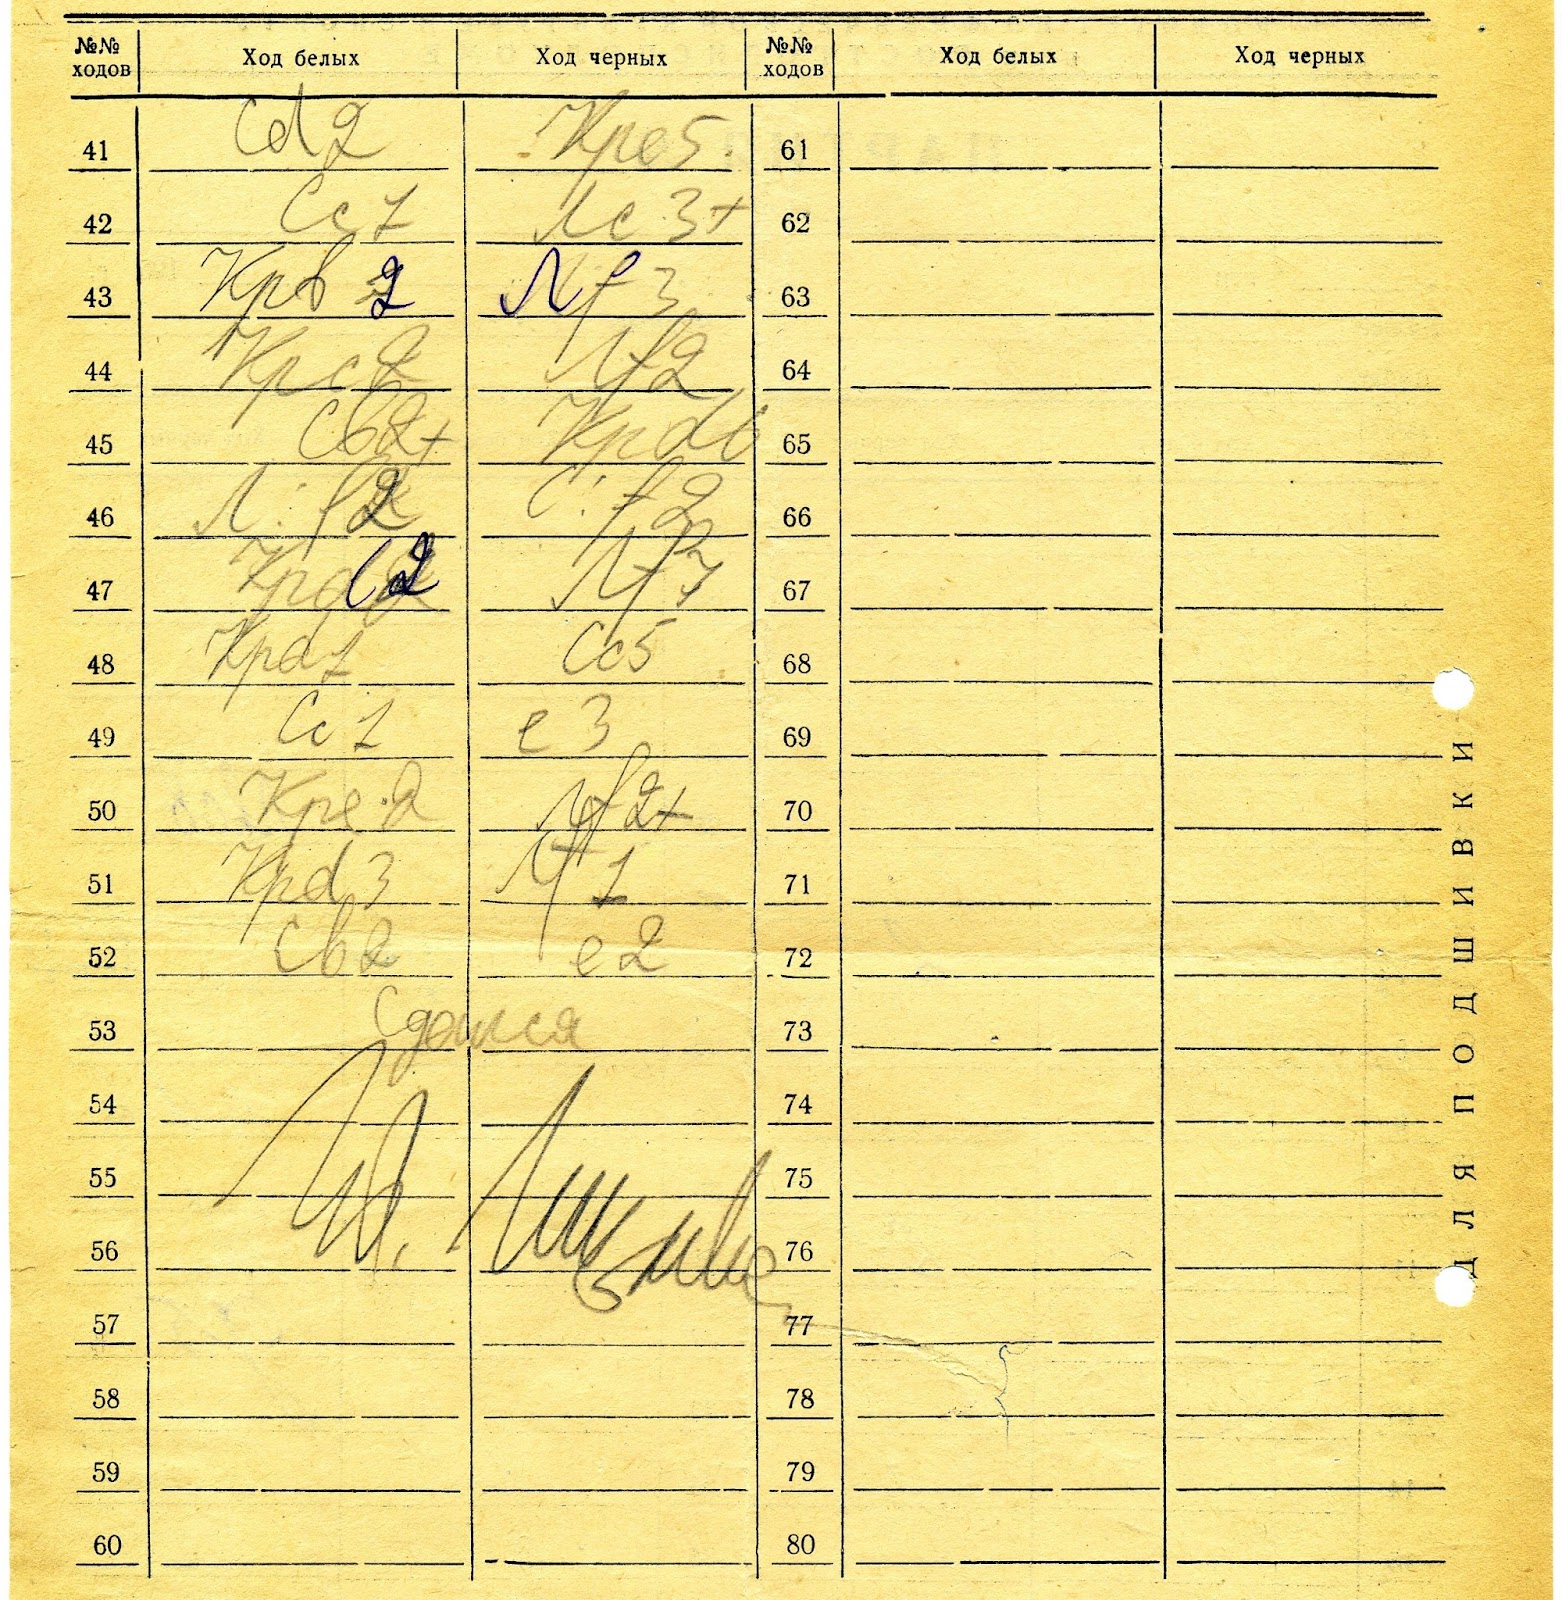 №№ ходов Ход белых Ход черных №№ ходов Ход белых Ход черных
41 Cd2 Кре5 61
42 Сс1 Лс3+ 62
43 Крb2 Лf3 63
44 Крс2 Лf2 64
45 Сb2+ Крd6 65
46 Л:f2 С:f2 66
47 Крd2 Лf7 67
48 Крd1 Сс5 68
49 Сс1 е3 69
50 Кре2 Лf2+ 70
51 Крd3 Лf1 71
52 Сb2 е2 72
53 Сдался 73
54 74
55 75
56 76
57 77
58 78
59 79
60 80
ДЛЯ ПОДШИВКИ